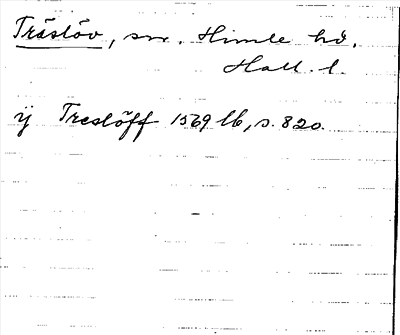 Träslöv, sn. Himle hd.
Hall. l.
ij Treslöff 1569 lb, s. 820.